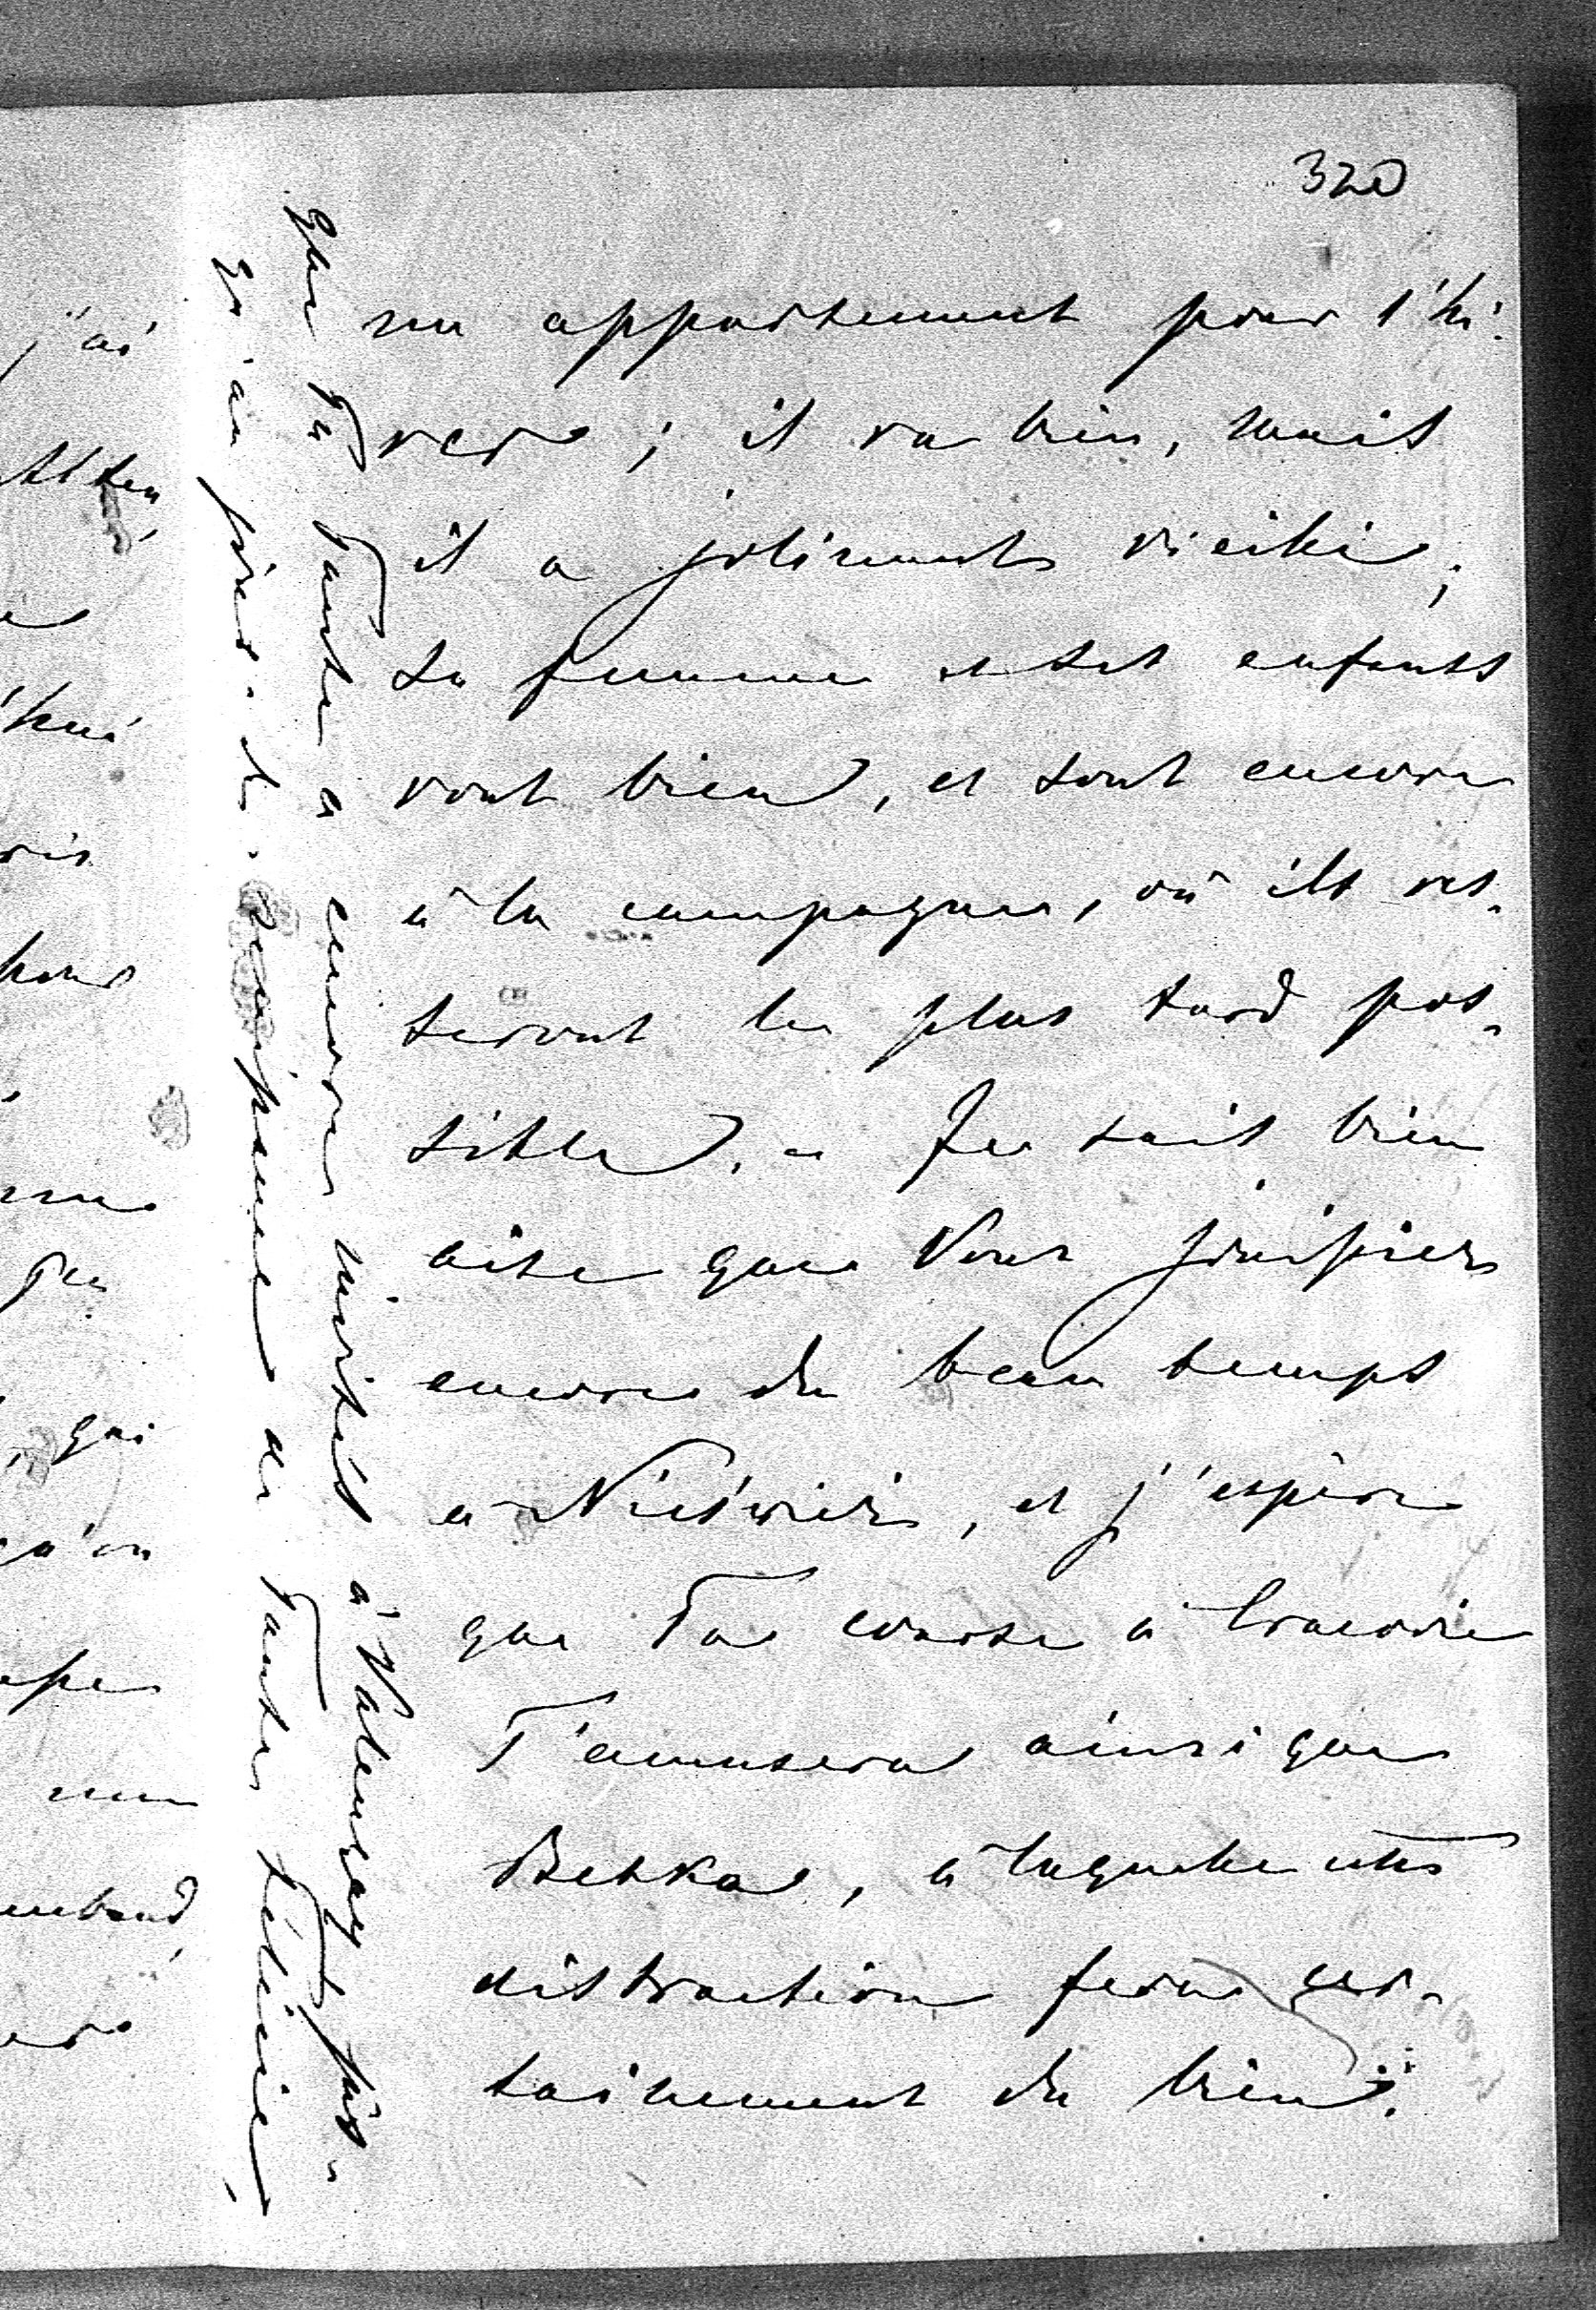 320
un appartement pour l'hi-
ver ; il va bien, mais
il a joliment vieilli ;
sa femme et ses enfants
vont bien, et sont encore
à la campagne, où ils res-
teront le plus tard pos-
sible. - Je suis bien
aise que Vous jouissiez
encore du beau temps
à Nieśwież, et j'espère
que Ta course à Cracovie
T'amusera ainsi que
Betka, à laquelle cette
distraction fera cer-
tainement du bien.
que Ta Tante a encore
à Valençay
de Tante
j'ai
qui